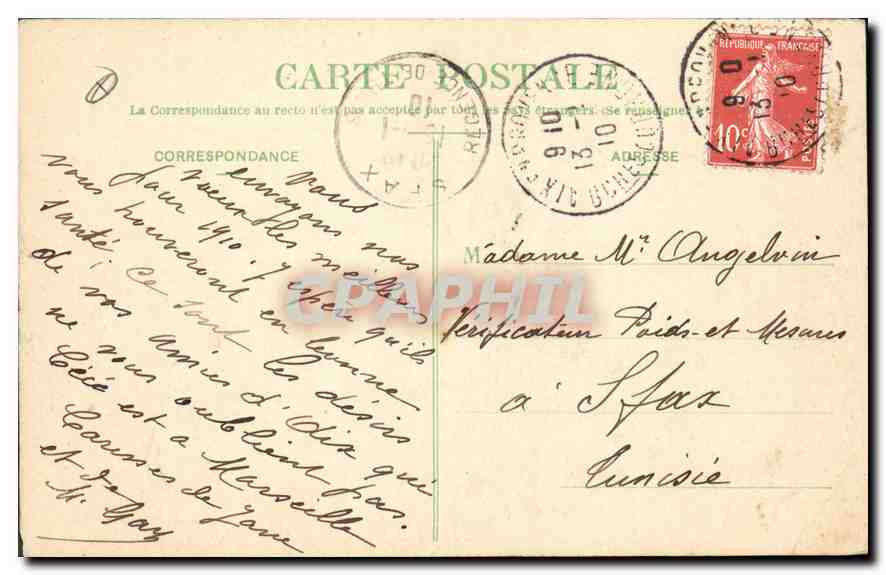 CARTE POSTALE
La Correspondance au recto n'est pas acceptée par tous les pays étrangers. (Se renseigner
CORRESPONDANCE
ADRESSE
RÉPUBLIQUE FRANÇAISE
10c
POSTES
SFAX
REGENCE DE
9 10
13 -1
10
Vous
envoyons nos
voeux les meilleurs
pour 1910 j'espère qu'ils
vous trouveront en bonne
santé, ce sont les désirs
de vos amies d'Aix qui
ne vous oublient pas.
Cécé est a Marseille
Caresses de
et de
M.
CPAPHIL
Madame Mr Angelvin
Vérificateur Poids et Mesures
à Sfax
Tunisie